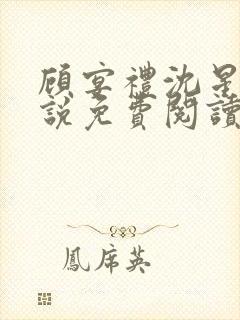 顧宴禮沈星
說免費閱讀
鳳席英